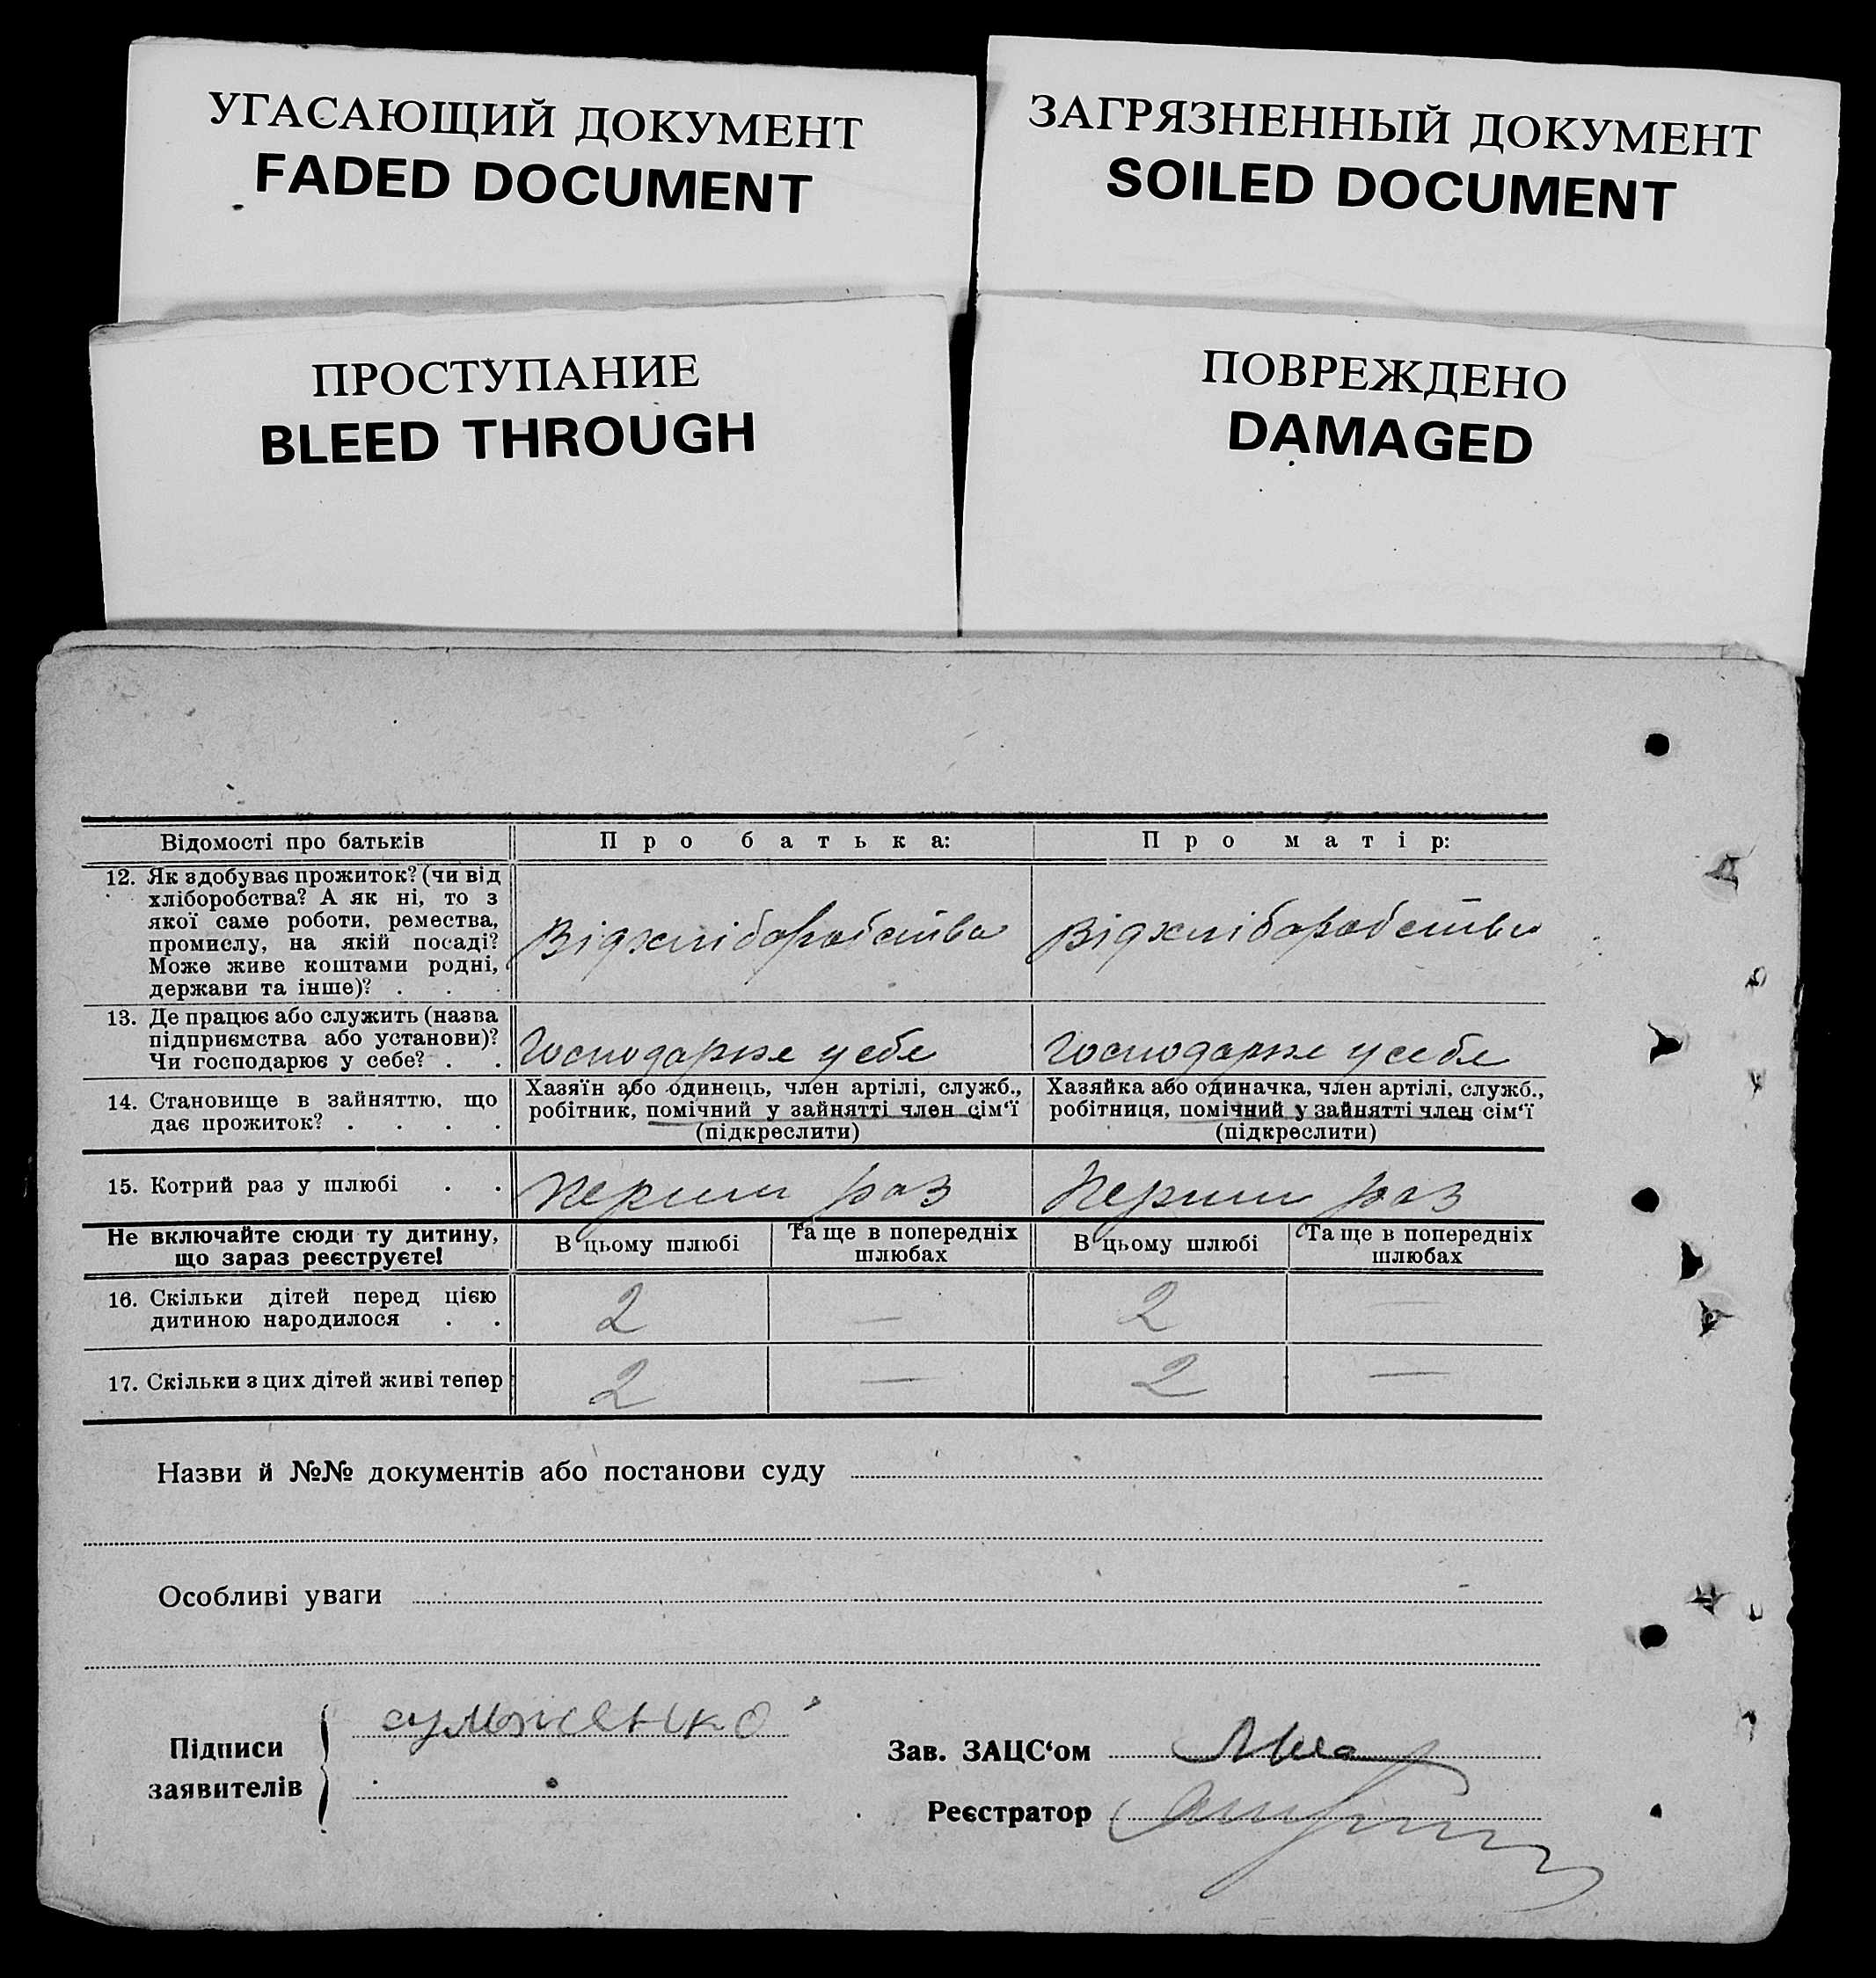 УГАСАЮЩИЙ ДОКУМЕНТ
FADED DOCUMENT
ЗАГРЯЗНЕННЫЙ ДОКУМЕНТ
SOILED DOCUMENT
ПРОСТУПАНИЕ
BLEED THROUGH
ПОВРЕЖДЕНО
DAMAGED
Відомості про батьків
Про батька:
Про матір:
12. Як здобуває прожиток? (чи від
хліборобства? А як ні, то з
якої саме роботи, ремества,
промислу, на якій посаді?
Може живе коштами родні,
держави та інше)? . . .
Відхліборобства
Відхліборобства
13. Де працює або служить (назва
підприємства або установи)?
Чи господарює у себе? . .
Господарює у себе
Господарює у себе
14. Становище в зайняттю, що
дає прожиток? . . . .
Хазяїн або одинець, член артілі, служб.,
робітник, помічний у зайнятті член сім'ї
(підкреслити)
Хазяйка або одиначка, член артілі, служб.,
робітниця, помічний у зайнятті член сім'ї
(підкреслити)
15. Котрий раз у шлюбі . .
перший раз
перший раз
Не включайте сюди ту дитину,
що зараз реєструєте!
В цьому шлюбі
Та ще в попередніх
шлюбах
В цьому шлюбі
Та ще в попередніх
шлюбах
16. Скільки дітей перед цією
дитиною народилося . .
2
—
2
—
17. Скільки з цих дітей живі тепер
2
—
2
—
Назви й №№ документів або постанови суду
Особливі уваги
Підписи
заявителів
Зав. ЗАЦС'ом
Реєстратор